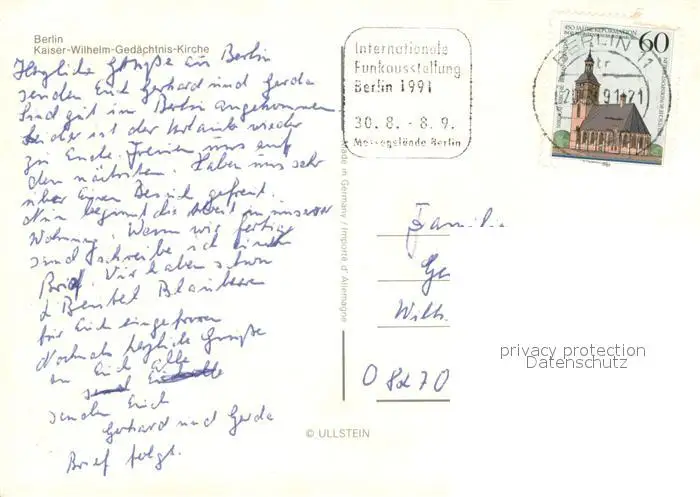 Berlin
Kaiser-Wilhelm-Gedächtnis-Kirche
Herzliche Grüße aus Berlin
senden Euch Gerhard und Gerda
Sind gut in Berlin angekommen
Leider ist der Urlaub wieder
zu Ende. Freuen uns auf
den nächsten. Haben uns sehr
über Euren Besuch gefreut.
Nun beginnt die Arbeit in unserer
Wohnung. Wenn wir fertig
sind schreibe ich einen
Brief. Wir haben schon
2 Beutel Blaubeeren
für Euch eingefroren
Nochmals herzliche Grüße
an Euch Alle
senden Euch
Gerhard und Gerda
Brief folgt.
Internationale
Funkausstellung
Berlin 1991
30. 8. - 8. 9.
Messegelände Berlin
450 JAHRE REFORMATION
60
BERLIN 11
Made in Germany / Importé d'Allemagne
Familie
Ge
Wilh
08270
© ULLSTEIN
privacy protection
Datenschutz